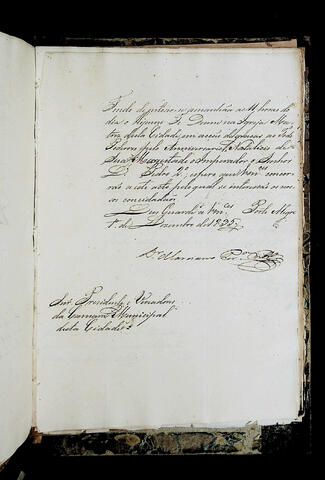 Tendo de entoar-se amanhã as 11 horas do
dia o Hymno Te Deum na Igreja Ma-
triz desta Cidade, em acção de graças ao Todo
Poderoso pelo Anniversario Natalicio de
Sua Magestade o Imperador, o Senhor
D. Pedro 2º, espero que Vmces concor-
rão a este acto pelo qual se interessão os nos-
sos concidadãos.
Deos Guarde a Vmces Porto Alegre
1º de Dezembro de 1835.
Snrs. Presidente e Vereadores
da Camara Municipal
desta Cidade.